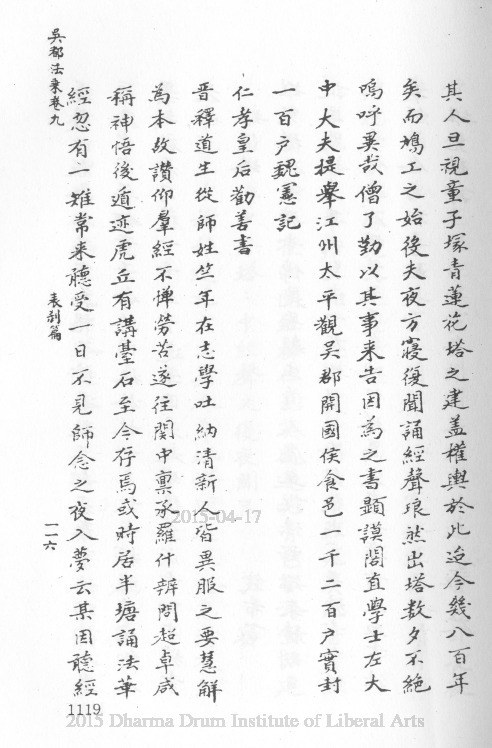 吳都法乘卷九
其人旦視童子塚青蓮花塔之建蓋權輿於此迨今幾八百年
矣而鳩工之始後夫夜方寢復聞誦經聲琅然出塔數夕不絕
嗚呼異哉僧了勤以其事来告因為之書顯謨閣直學士左大
中大夫提舉江州太平觀吳郡開國侯食邑一千二百户實封
一百户魏憲記
仁孝皇后勸善書
晋釋道生從師姓竺年在志學吐納清新人皆異服之要慧解
為本故讚仰羣經不憚勞苦遂往関中稟承羅什辨問超卓咸
稱神悟後遁迹虎丘有講臺石至今存焉或時居半塘誦法華
經忽有一雉常来聽受一日不見師念之夜入夢云某因聽經
表刹篇
一一六
1119
2015-04-17
2015 Dharma Drum Institute of Liberal Arts